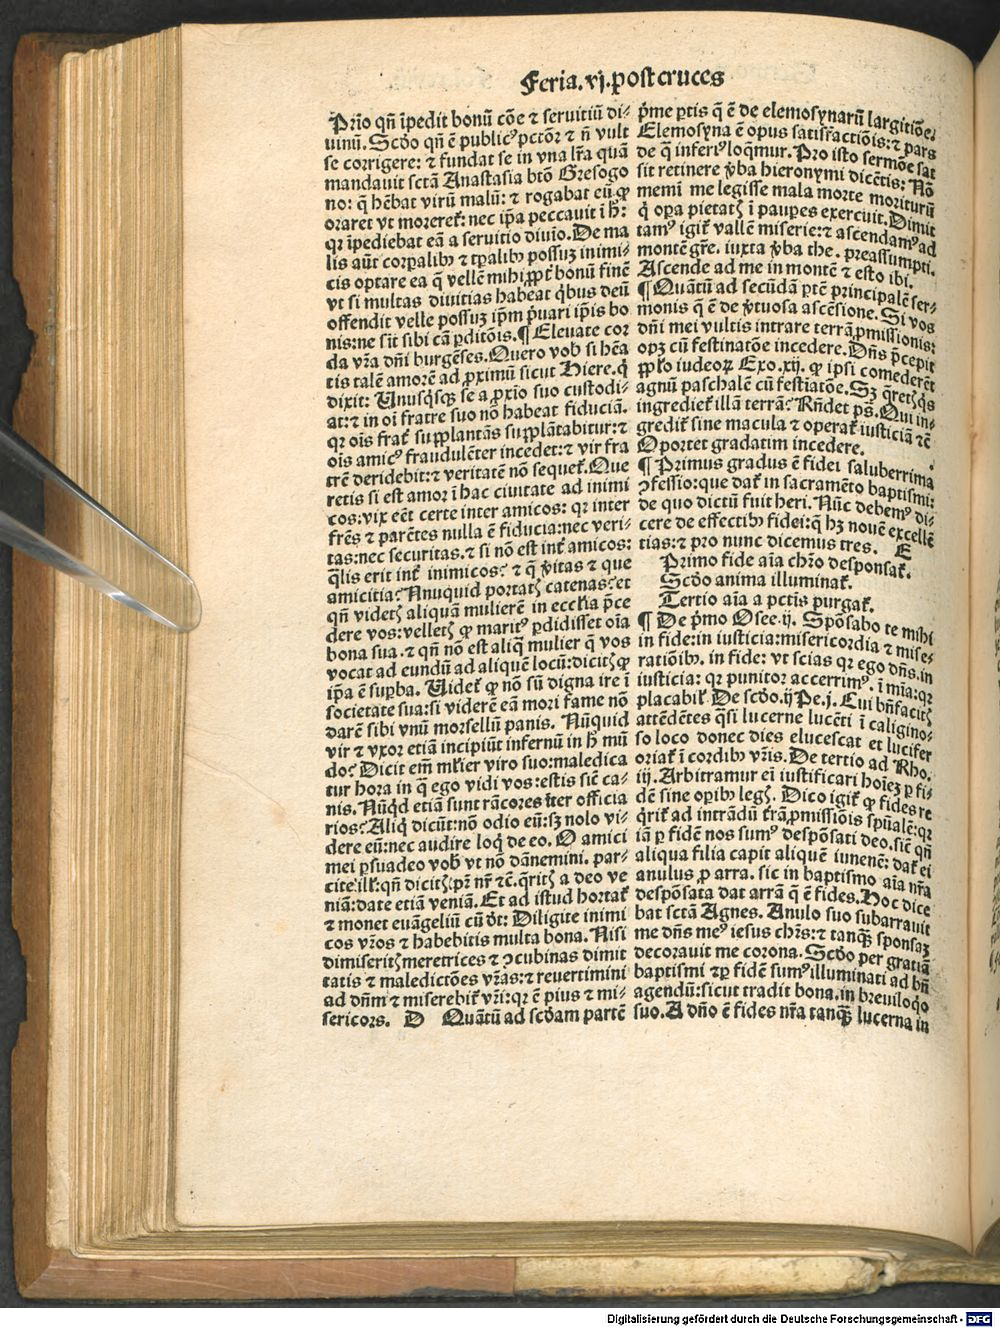 Feria.vj.post cruces
Prīo qn̄ īpedit bonū cōe ⁊ seruitiū di-
uinū. Scd̓o qn̄ ē public⁹ pctōr ⁊ n̄ vult
se corrigere: ⁊ fundat se in vna lr̄a quā
mandauit sctā Anastasia btō Gresogo
no: q̄ hēbat virū malū: ⁊ rogabat eū ꝙ
oraret vt moreret᷑: nec ip̄a peccauit ī h̄:
qꝛ īpediebat eā a seruitio diuīo. De ma
lis aūt corꝑalib⁹ ⁊ tꝑalib⁹ possuꝫ inimi-
cis optare ea q̄ vellē mihi ꝓpt̓ bonū finē
vt si multas diuitias habeat q̇bus deū
offendit velle possuꝫ ip̄m p̓uari ip̄is bo
nis: ne sīt sibi cā ꝑditōis. ¶ Eleuate cor
da vr̄a dn̄i burgēses. Quero vob̓ si hēa
tis talē amorē ad ꝓximū sicut Hiere. q̇
dixit: Unusq̇sqꝫ se a ꝓxīo suo custodi-
at: ⁊ in oī fratre suo nō habeat fiduciā.
qꝛ oīs frat᷑ supplantās supplātabitur: ⁊
oīs amic⁹ fraudulēter incedet: ⁊ vir fra
trē deridebit: ⁊ veritatē nō sequet᷑. Que
retis si est amor ī hac ciuitate ad inimi
cos: vix eēt certe inter amicos: qꝛ inter
fr̄es ⁊ parētes nulla ē fiducia: nec veri-
tas: nec securitas. ⁊ si nō est int̓ amicos:
q̄lis erit int̓ inimicos? ⁊ q̄ v̓itas ⁊ que
amicitia? Nnuquid portatꝭ catenas? et
qn̄ videtꝭ aliquā mulierē in eccl̓ia p̄ce
dere vos: velletꝭ ꝙ marit⁹ ꝑdidisset oīa
bona sua. ⁊ qn̄ nō est aliq̄ mulier q̄ vos
vocat ad eundū ad aliquē locū: dicitꝭ ꝙ
ip̄a ē suꝑba. Uidet᷑ ꝙ nō sū digna ire ī
societate sua: si viderē eā mori fame nō
darē sibi vnū morsellū panis. Nūquid
vir ⁊ vxor etiā incipiūt infernū in h̄ mū
do? Dicit em̄ ml̓ier viro suo: maledica
tur hora in q̄ ego vidi vos: estis sic̄ ca-
nis. Nūq̇d etiā sunt rācores īter officia
rios? Aliq̇ dicūt: nō odio eū: sꝫ nolo vi-
dere eū: nec audire loq̇ de eo. O amici
mei ꝑsuadeo vob̓ vt nō dānemini. par-
cite ill̓: qn̄ dicitꝭ: pr̄ nr̄ ⁊c̄. q̄ritꝭ a deo ve
niā: date etiā veniā. Et ad istud hortat᷑
⁊ monet euāgeliū cū d̓t: Diligite inimi
cos vr̄os ⁊ habebitis multa bona. Nisi
dimiseritꝭ meretrices ⁊ ꝯcubinas dimit
tatis ⁊ maledictōes vr̄as: ⁊ reuertimini
ad dn̄m ⁊ miserebit᷑ vr̄i: qꝛ ē pius ⁊ mi-
sericors. D Quātū ad scd̓am partē
p̓me ꝑtis q̄ ē de elemosynarū largitiōe.
Elemosyna ē opus satisfactiōis: ⁊ pars
de q̄ inferi⁹ loq̄mur. Pro isto sermōe sat
sit retinere v̓ba hieronymi dicētis: Nō
memī me legisse mala morte moriturū
q̇ oꝑa pietatꝭ ī pauꝑes exercuit. Dimit
tam⁹ igit᷑ vallē miserie: ⁊ ascendam⁹ ad
montē gr̄e. iuxta v̓ba the. preassumpti.
Ascende ad me in montē ⁊ esto ibi.
¶ Quātū ad secūdā ꝑtē principalē ser-
monis q̄ ē de v̓tuosa ascēsione. Si vos
dn̄i mei vultis intrare terrā ꝓmissionis:
opꝫ cū festinatōe incedere. Dn̄s p̄cepit
ppl̓o iudeoꝝ Exo. xij. ꝙ ipsi comederēt
agnū paschalē cū festīatōe. Sꝫ q̄retꝭ q̇s
ingrediet᷑ illā terrā? Rn̄det ps̄. Qui in-
gredit᷑ sine macula ⁊ operat᷑ iusticiā ⁊c̄
Oportet gradatim incedere.
¶ Primus gradus ē fidei saluberrima
ꝯfessio: que dat᷑ in sacramēto baptismi:
de quo dictū fuit heri. Nūc debem⁹ di-
cere de effectib⁹ fidei: q̄ hꝫ nouē excellē
tias: ⁊ pro nunc dicemus tres. E
Primo fide aīa chr̄o desponsat᷑.
Scd̓o anima illuminat᷑.
Tertio aīa a pctīs purgat᷑.
¶ De p̓mo Osee. ij. Spōsabo te mihi
in fide: in iusticia: misericordia ⁊ mise-
ratiōib⁹. in fide: vt scias qꝛ ego dn̄s. in
iusticia: qꝛ punitor accerrim⁹. ī mīa: qꝛ
placabil̓. De scd̓o. ij Pe. j. Cui bn̄facitꝭ
attēdētes q̄si lucerne lucēti ī caligino-
so loco donec dies elucescat et lucifer
oriat᷑ ī cordib⁹ vr̄is. De tertio ad Rho.
iij. Arbitramur eī iustificari hoīeꝫ ꝑ fi-
dē sine oꝑib⁹ legꝭ. Dico igit᷑ ꝙ fides re
q̇rit᷑ ad intrādū t̓rā ꝓmissiōis spūalē: qꝛ
iā ꝑ fidē nos sum⁹ despōsati deo. sic̄ qn̄
aliqua filia capit aliquē iuuenē: dat᷑ ei
anulus ꝓ arra. sic in baptismo aīa nr̄a
despōsata dat arrā q̄ ē fides. Hoc dice
bat sctā Agnes. Anulo suo subarrauit
me dn̄s me⁹ iesus chr̄s: ⁊ tanqꝫ̄ sponsaꝫ
decorauit me corona. Scd̓o per gratiā
baptismi ⁊ ꝑ fidē sum⁹ illuminati ad bn̄
agendū: sicut tradit bona. in breuiloq̇o
suo. A dn̄o ē fides nr̄a tanqꝫ̄ lucerna in
Digitalisierung gefördert durch die Deutsche Forschungsgemeinschaft - DFG